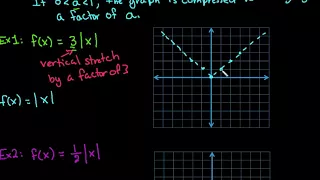 If 0<a<1, the graph is compressed
a factor of a.
Ex1: f(x) = 3|x|
vertical stretch
by a factor of 3
f(x) = |x|
Ex2: f(x) = 1/2|x|